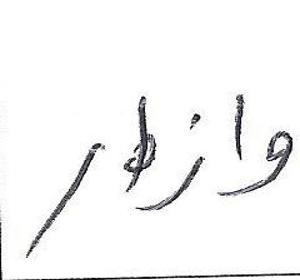 وازهر